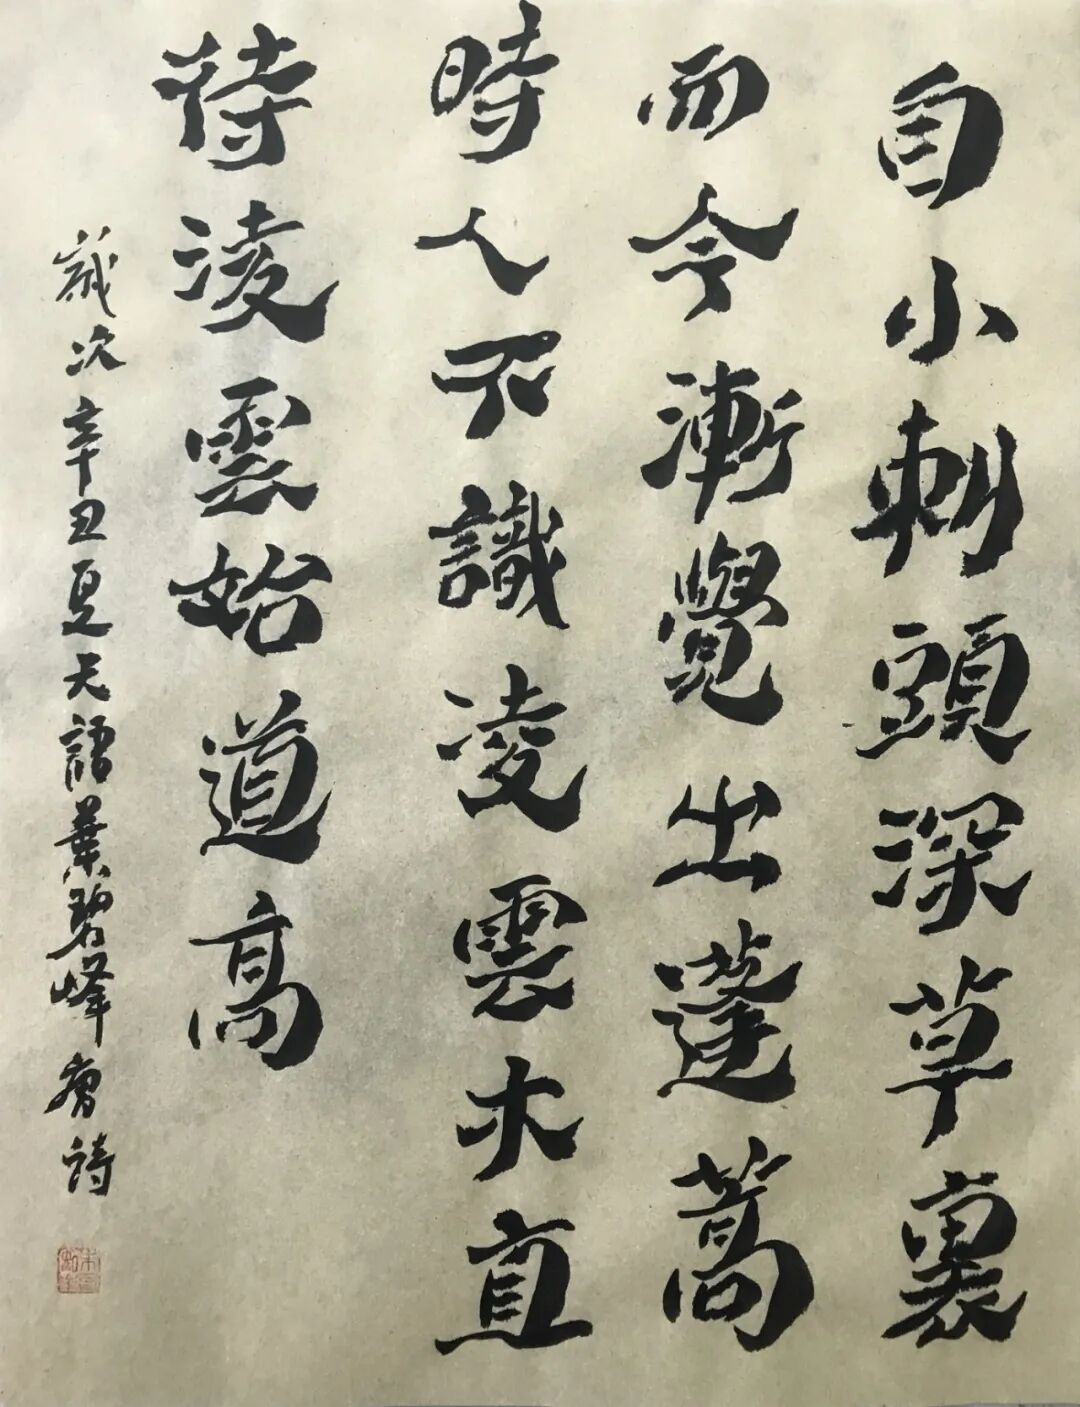 自小刺頭深草裏
而今漸覺出蓬蒿
時人不識凌雲木直
待淩雲始道高
歲次辛丑夏天語葉碧峰唐詩